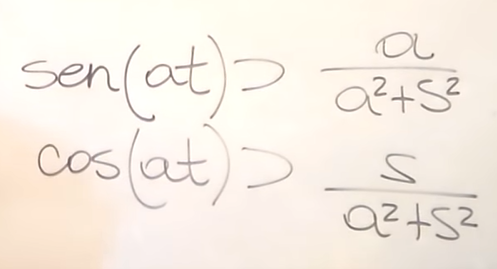 sen(at) ⊃ a/(a²+s²)
cos(at) ⊃ s/(a²+s²)